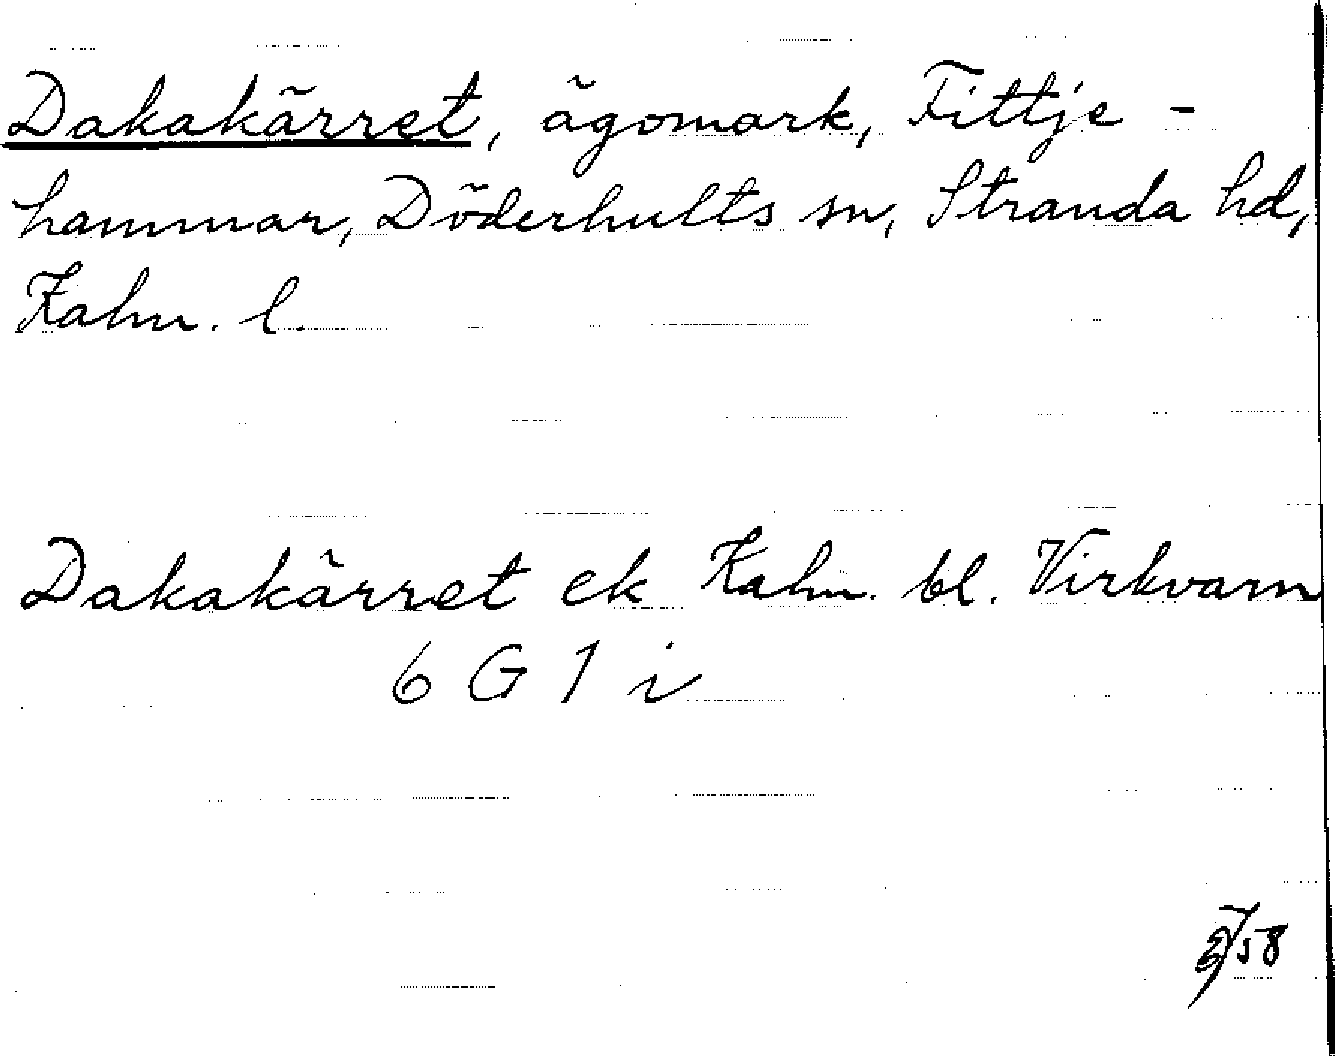 Dakakärret, ägomark, Fittje-
hammar, Döderhults sn, Stranda hd,
Kalm. l.
Dakakärret ek Kalm. bl. Virkvarn
6 G 1 i
58